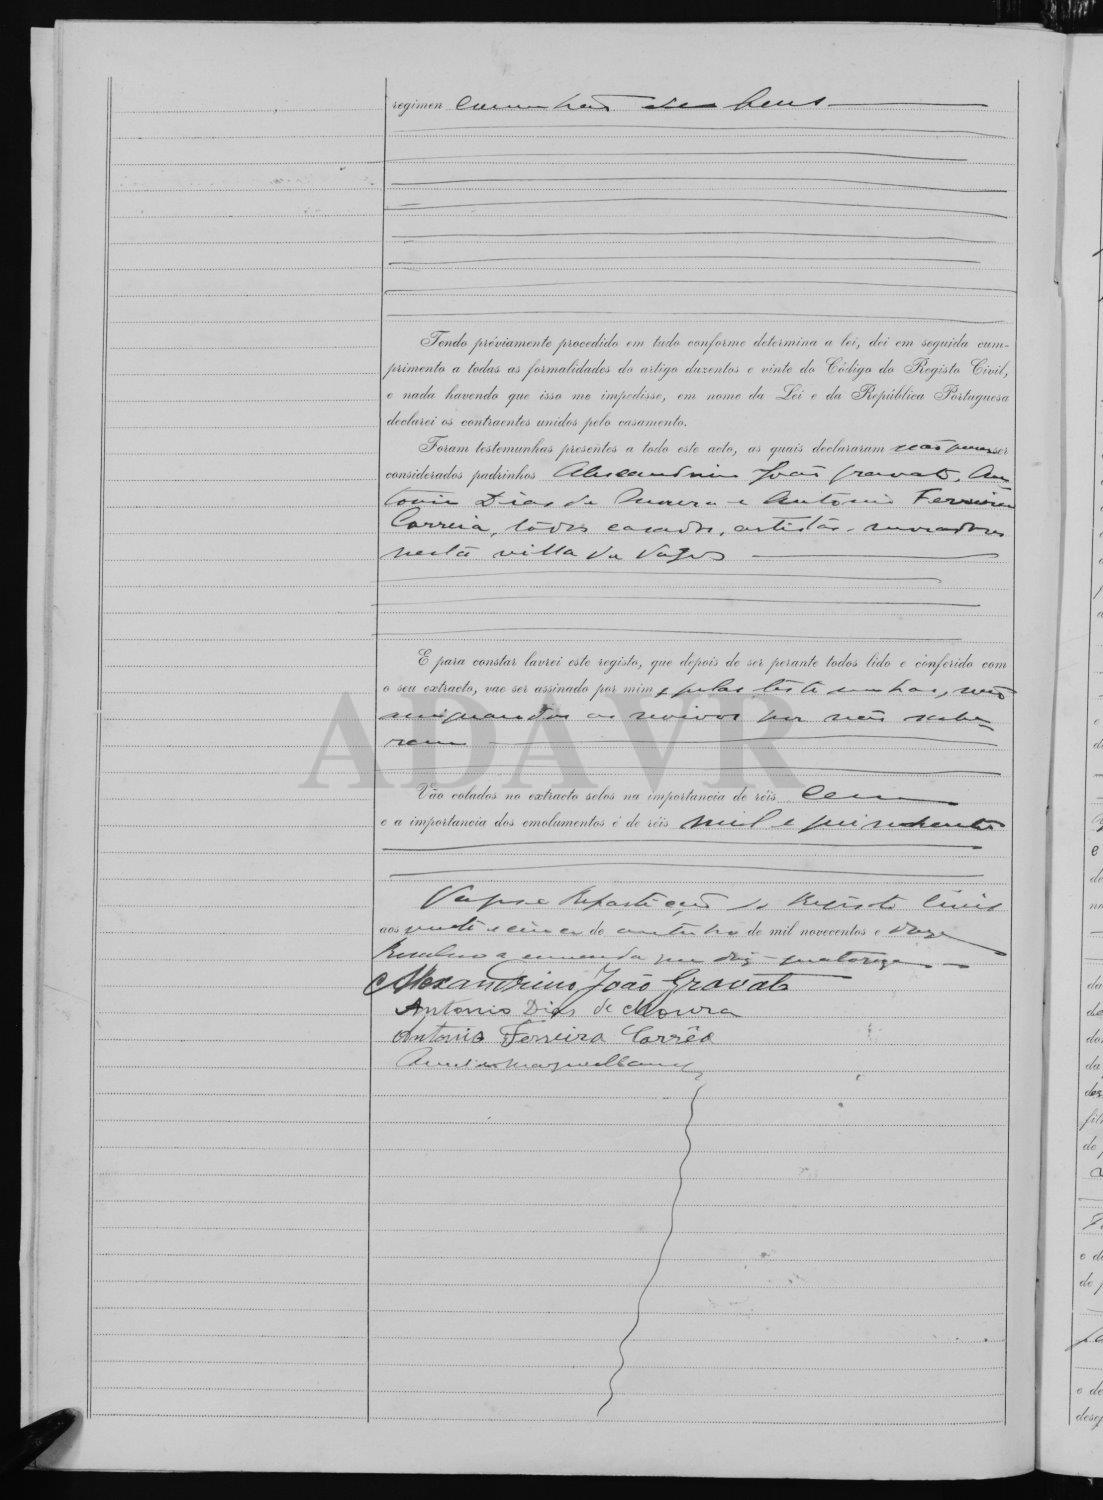 regimen comunhão de bens
Tendo préviamente procedido em tudo conforme determina a lei, dei em seguida cum-
primento a todas as formalidades do artigo duzentos e vinte do Código do Registo Civil,
e nada havendo que isso me impedisse, em nome da Lei e da República Portuguesa
declarei os contraentes unidos pelo casamento.
Foram testemunhas presentes a todo este acto, as quais declararam não ser
considerados padrinhos Alexandrino João Gravato, An-
tonio Dias de Moura e Antonio Ferreira
Correia, todos casados, artistas, moradores
nesta villa de Vagos
E para constar lavrei este registo, que depois de ser perante todos lido e conferido com
o seu extracto, vae ser assinado por mim e pelas testemunhas, não
os noivos por não sabe-
rem
ADAVR
Vão colados no extracto selos na importancia de réis cem
e a importancia dos emolumentos é de réis mil e quinhentos
Vagos e Repartição do Registo Civil
aos vinte e cinco de outubro de mil novecentos e doze
Resalvo a emenda que diz quatorze
Alexandrino João Gravato
Antonio Dias de Moura
Antonio Ferreira Corrêa